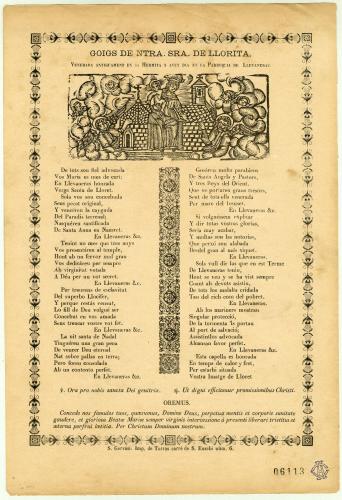 GOIGS DE NTRA. SRA. DE LLORITA,
VENERADA ANTIGUAMENT EN LA HERMITA Y AVUY DIA EN LA PARROQUIA DE LLEVANERAS.
De tots sou fiel advocada
Vos Maria es mes de cert:
En Llevaneras honrada
Verge Santa de Lloret.
Sola vos sou concebuda
Sens pecat original,
Y venciren la cayguda
Del Paradis terrenal:
Nasquéreu santificada
De Santa Anna en Nazaret.
En Llevaneras &c.
Tenint no mes que tres anys
Vos presentáren al temple,
Hont ab un fervor mol gran
Vos dedicáreu per sempre
Ab virginitat votada
A Deu per un vot secret.
En Llevaneras &c.
Per traurens de esclavitut
Del superbo Llucifer,
Y perque restás vensut,
Lo fill de Deu volgué ser
Concebut en vos amada
Sens trencar vostre vot fet.
En Llevaneras &c.
La nit santa de Nadal
Tinguéreu una gran pena
De veurer Deu eternal
Nat sobre pallas en terra;
Pero fóreu consolada
Ab un contento perfet.
En Llevaneras &c.
Gosáreu molts parabiens
De Sants Angels y Pastors,
Y tres Reys del Orient,
Que os portáren grans tresors,
Sent de tots ells venerada
Per mare del Innocent.
En Llevaneras &c.
Si volguéssem explicar
Y dir totas vostras glorias,
Seria may acabar,
En Llevaneras &c.
Sola vull dir las que en est Terme
De Llevaneras tenia,
En Llevaneras
Ab los mariners mostrau
Singular protecció,
De la tormenta 'ls portau
Al port de salvació,
Assistintlos advocada
Alcansan favor perfet.
En Llevaneras &c.
Esta capella es honrada
En temps de calor y fret,
Per estarhi situada
Vostra Imatge de Lloret.
℣. Ora pro nobis sancta Dei genitrix. ℟. Ut digni efficiamur promissionibus Christi.
OREMUS.
Concede nos famulos tuos, quæsumus, Domine Deus, perpetua mentis et corporis sanitate
gaudere, et gloriosa Beatæ Mariæ semper virginis intercessione à presenti liberari tristitia et
æterna perfrui lætitia. Per Christum Dominum nostrum.
S. Gervasi: Imp. de Torras carré de S. Eusebi núm. 6.
06113